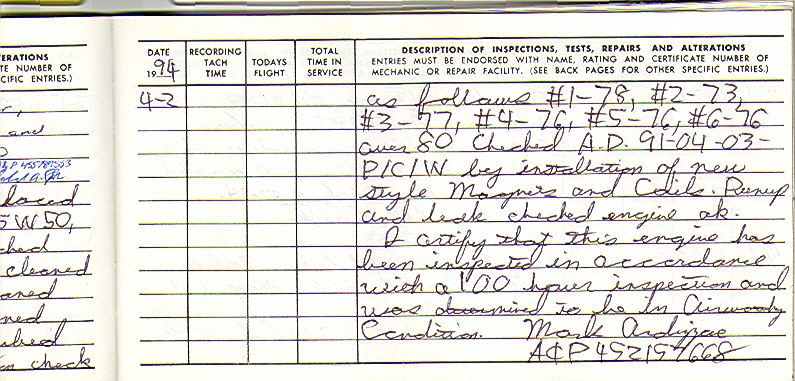 ERATIONS
TE NUMBER OF
CIFIC ENTRIES.)
and
laced
5W50,
ched
cleaned
aned
ned
check
DATE
1994
RECORDING TACH TIME
TODAYS FLIGHT
TOTAL TIME IN SERVICE
DESCRIPTION OF INSPECTIONS, TESTS, REPAIRS AND ALTERATIONS
ENTRIES MUST BE ENDORSED WITH NAME, RATING AND CERTIFICATE NUMBER OF
MECHANIC OR REPAIR FACILITY. (SEE BACK PAGES FOR OTHER SPECIFIC ENTRIES.)
4-2 as follows #1-78, #2-73,
#3-77, #4-76, #5-76, #6-76
over 80 Checked A.D. 91-04-03-
P/C/W by installation of new
style Magnets and Coils. Runup
and leak checked engine ok.
I certify that this engine has
been inspected in accordance
with a 100 hour inspection and
was determined to be in Airworthy
Condition. Mark
A&P 452157668